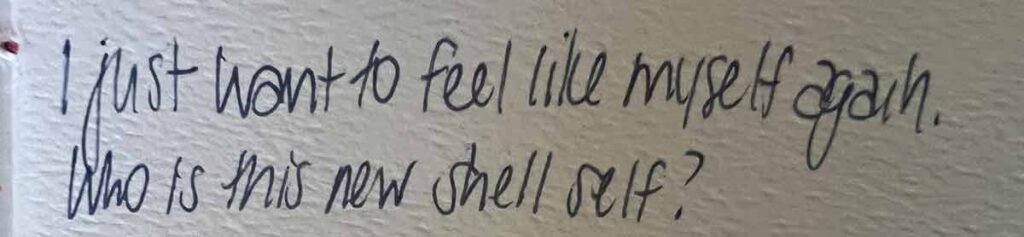 I just want to feel like myself again.
Who is this new shell self?